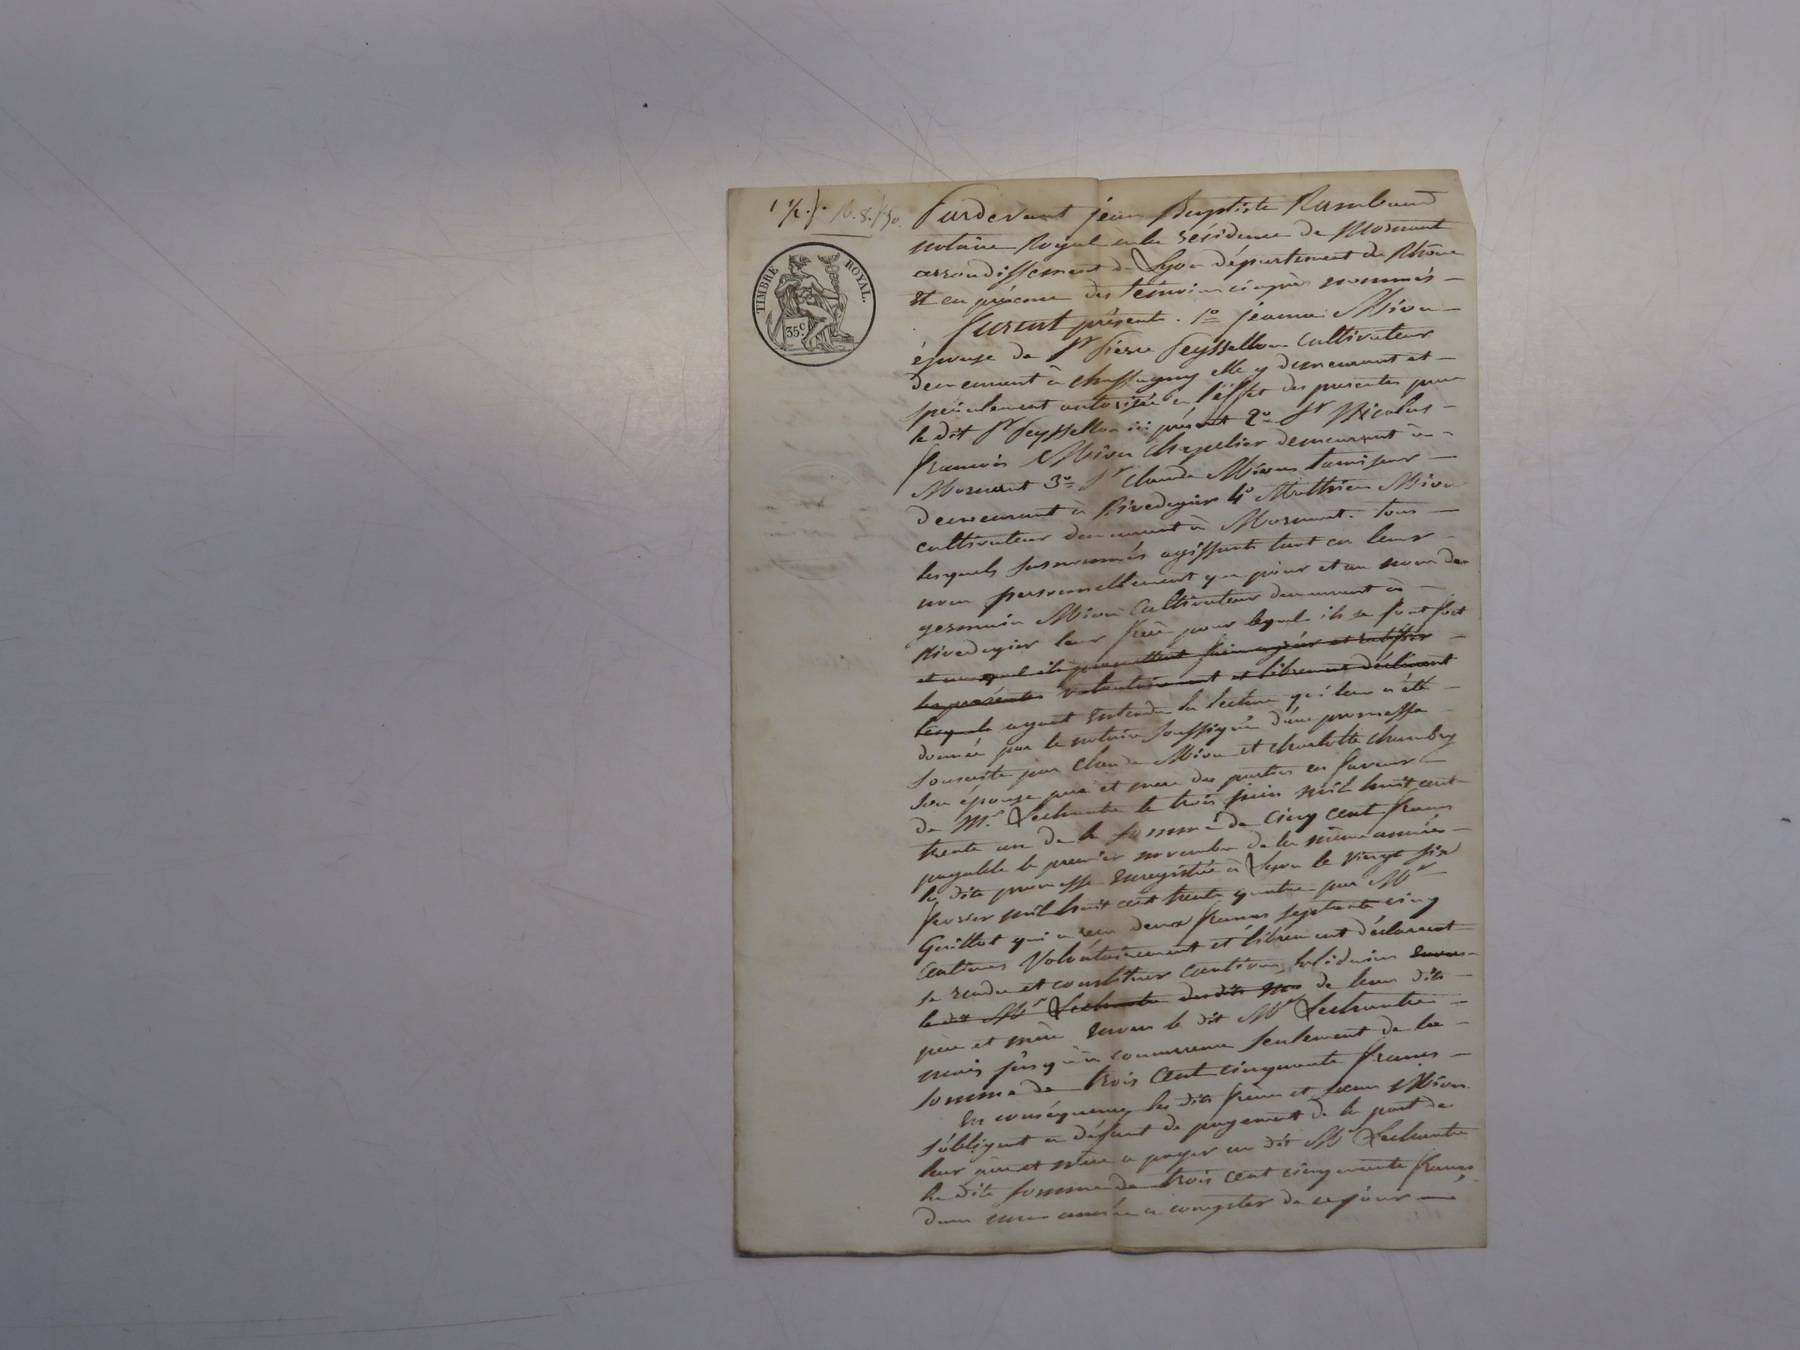 TIMBRE ROYAL.
35c
Pardevant jean Baptiste Rambaud
notaire Royal à la résidence de Mornant
arrondissement de Lyon département du Rhône
Et en présence des témoins cinaprès nommés
furent présents. 1o jeanne Mivon
épouse de Sr Pierre Peyssellon Cultivateur
demeurant à Chassagny elle y demeurant et
spécialement autorisée à l'effet des présentes par
le dit Sr Peyssellon ici présent 2o Sr Nicolas
francois Mivon Chapelier demeurant à
Mornant 3o Sr Claude Mivon
demeurant à Rivedegier 4o Mathieu Mivon
cultivateur demeurant à Mornant. Tous
lesquels susnommés agissants tant en leur
nom personnellement que pour et au nom de
germain Mivon Cultivateur demeurant à
Rivedegier leur frère pour lequel ils se font fort
et ils promettent faire et ratifier
les présentes volontairement et librement déclarent
lesquels ayant Entendu la lecture qui leur a été
donnée par le notaire soussigné d'une promesse
souscrite par Claude Mivon et charlotte Chambry
son épouse père et mère des parties en faveur
de Mr Lechantre le trois juin mil huit cent
trente un de la somme de cinq cent francs
payable le premier novembre de la même année
la dite promesse Enregistrée à Lyon le vingt six
fevrier mil huit cent trente quatre par Mr
Guillot qui a reçu deux francs septante cinq
Centimes Volontairement et librement déclarent
se rendre et constituer Cautions solidaires Envers
le dit Mr Lechantre des dits de leur dits
père et mère Envers le dit Mr Lechantre
mais jusqu'à concurrence seulement de la
somme de trois Cent cinquante francs
En conséquence les dits frères et sœur Mivon
s'obligent à défaut de payement de la part de
leur père et mère a payer au dit Mr Lechantre
la dite somme de trois cent cinquante francs
dans une année a compter de ce jour